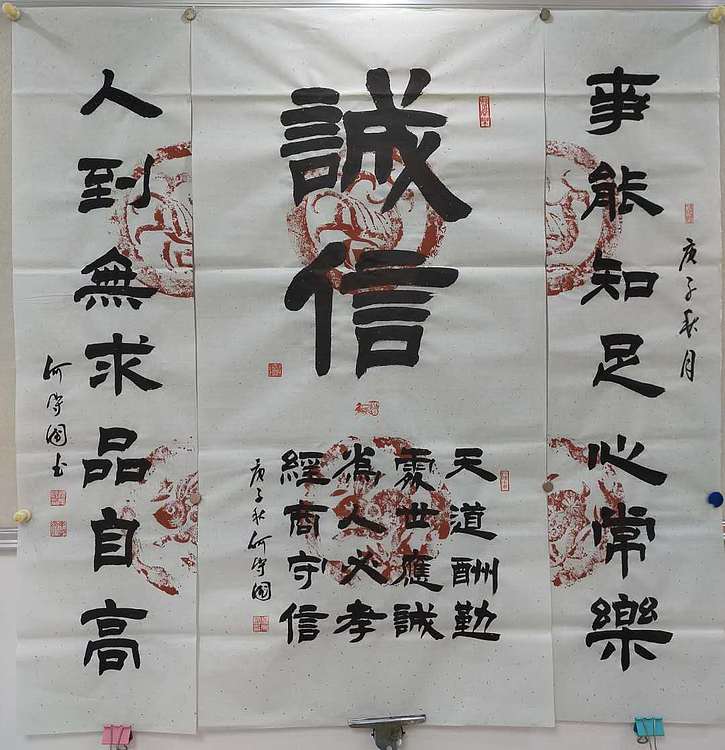 事能知足心常樂
庚子秋月
誠信
天道酬勤
處世應誠
為人必孝
經商守信
庚子秋何守國
人到無求品自高
何守國書